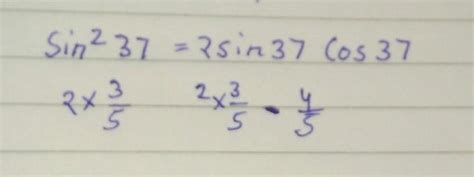 sin² 37 = 2sin37 cos37
2 × 3/5 2 × 3/5 · 4/5